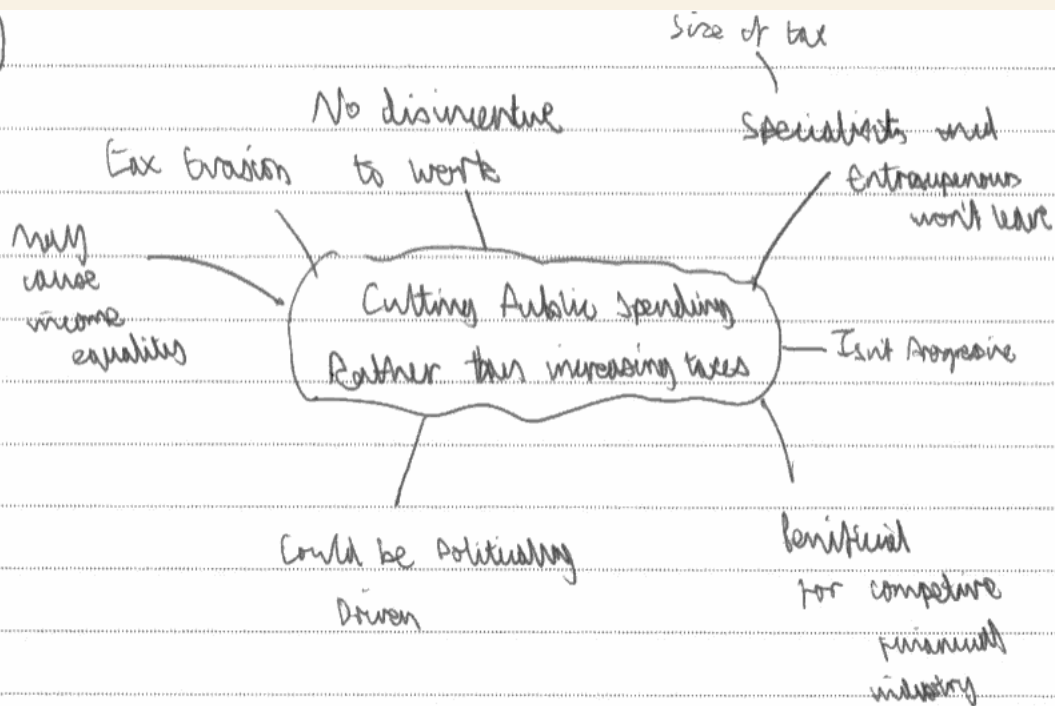 Size of tax
No disincentive
to work
Tax Evasion
Specialists and
Entraupenours
won't leave
May
cause
income
equalities
Cutting Public Spending
Rather than increasing taxes
Isn't Progressive
Could be Politically
Driven
Benificial
for competive
financial
industry